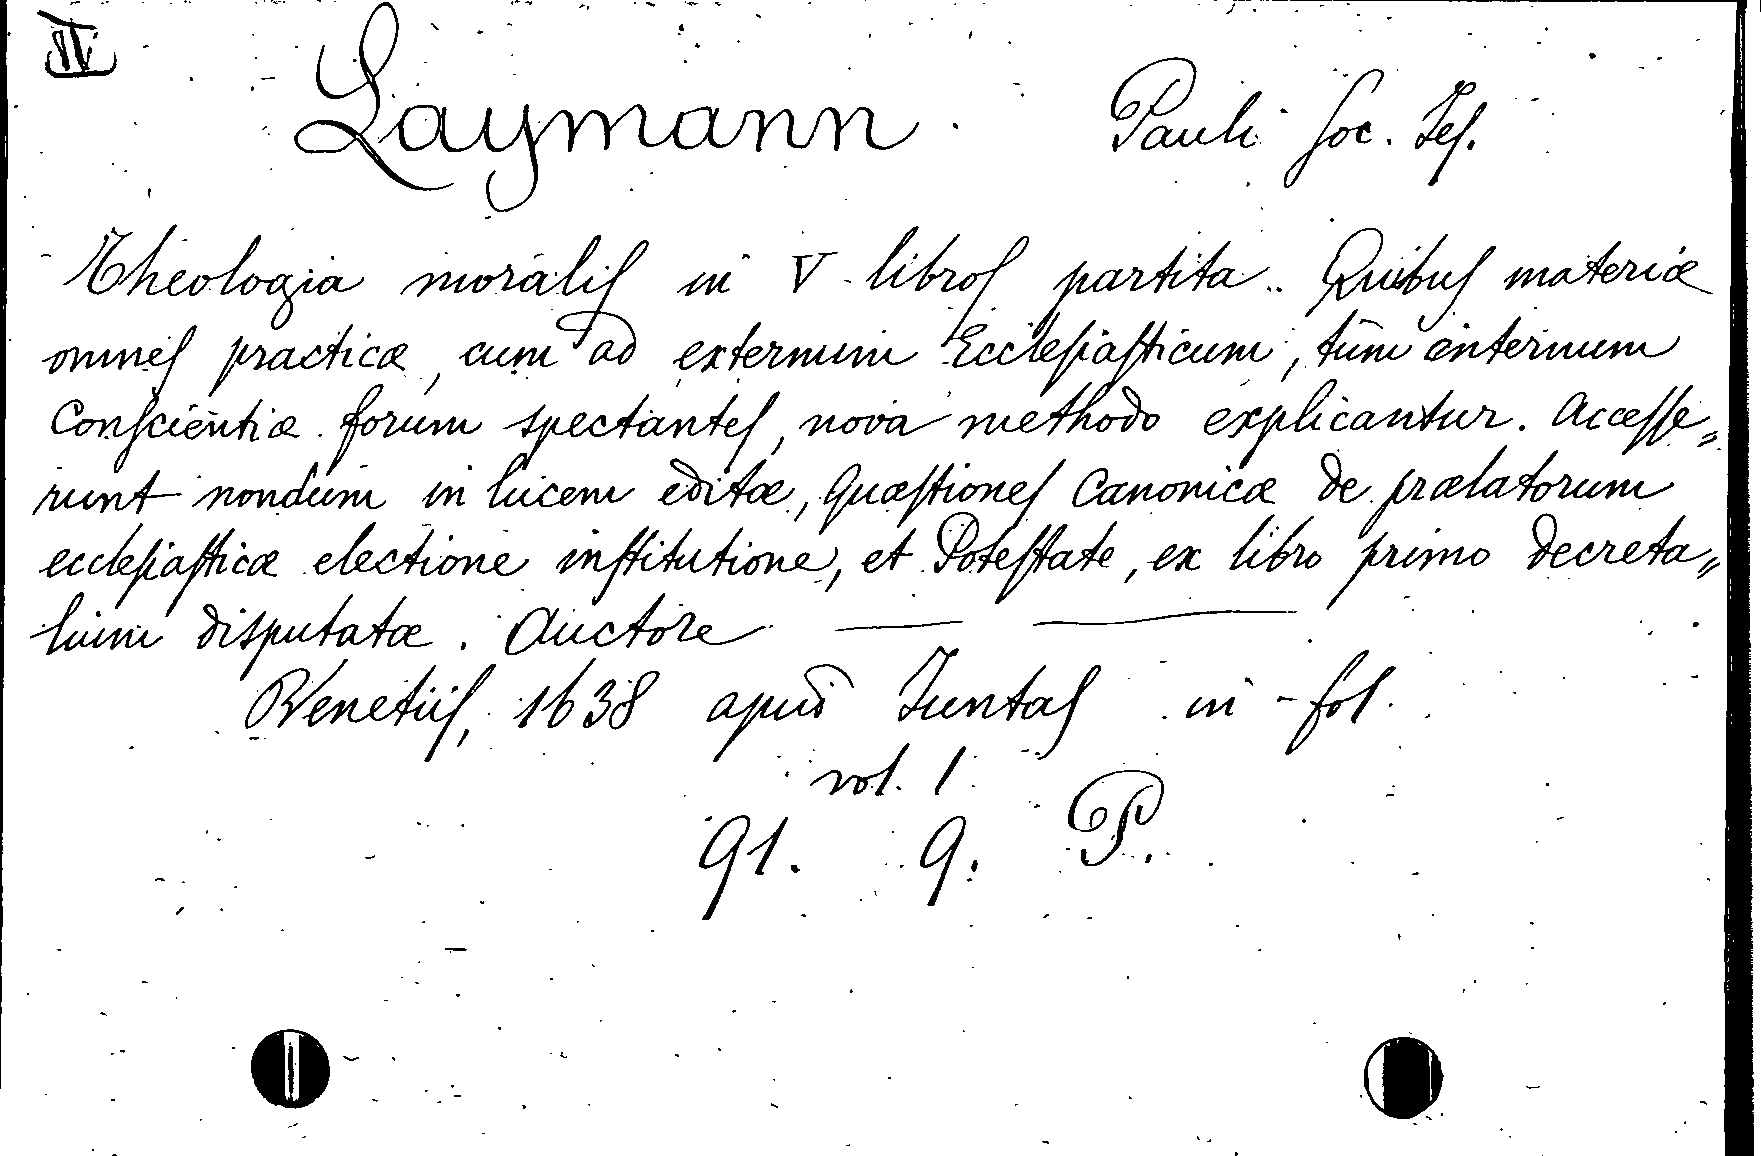 IV
Laymann. Pauli Soc. Jes.
Theologia moralis in V libros partita.. Quibus materiæ
omnes practicæ, cum ad externum Ecclesiasticum, tum internum
Conscientiæ forum spectantes, nova methodo explicantur. Accesse„
runt nondum in lucem editæ, quæstiones Canonicæ de prælatorum
ecclesiasticæ electione institutione, et Potestate, ex libro primo decreta„
lium disputatæ. Auctore — —
Venetiis, 1638 apud Juntas in-fol.
vol. 1
91. 9. P.